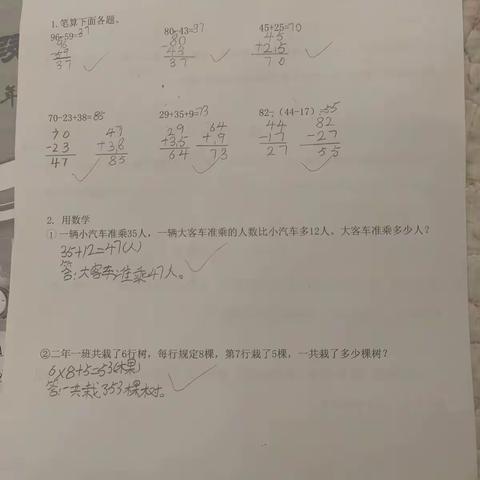 1.笔算下面各题。
96-59=37 80-43=37 45+25=70
96 80 45
-59 -43 +25
37 37 70
70-23+38=85 29+35+9=73 82-(44-17)=55
70 47 29 64 44 82
-23 +38 +35 +9 -17 -27
47 85 64 73 27 55
2. 用数学
①一辆小汽车准乘35人，一辆大客车准乘的人数比小汽车多12人、大客车准乘多少人？
35+12=47(人)
答:大客车准乘47人。
②二年一班共栽了6行树，每行规定8棵，第7行栽了5棵，一共栽了多少棵树？
6×8+5=53(棵)
答:一共栽了53棵树。